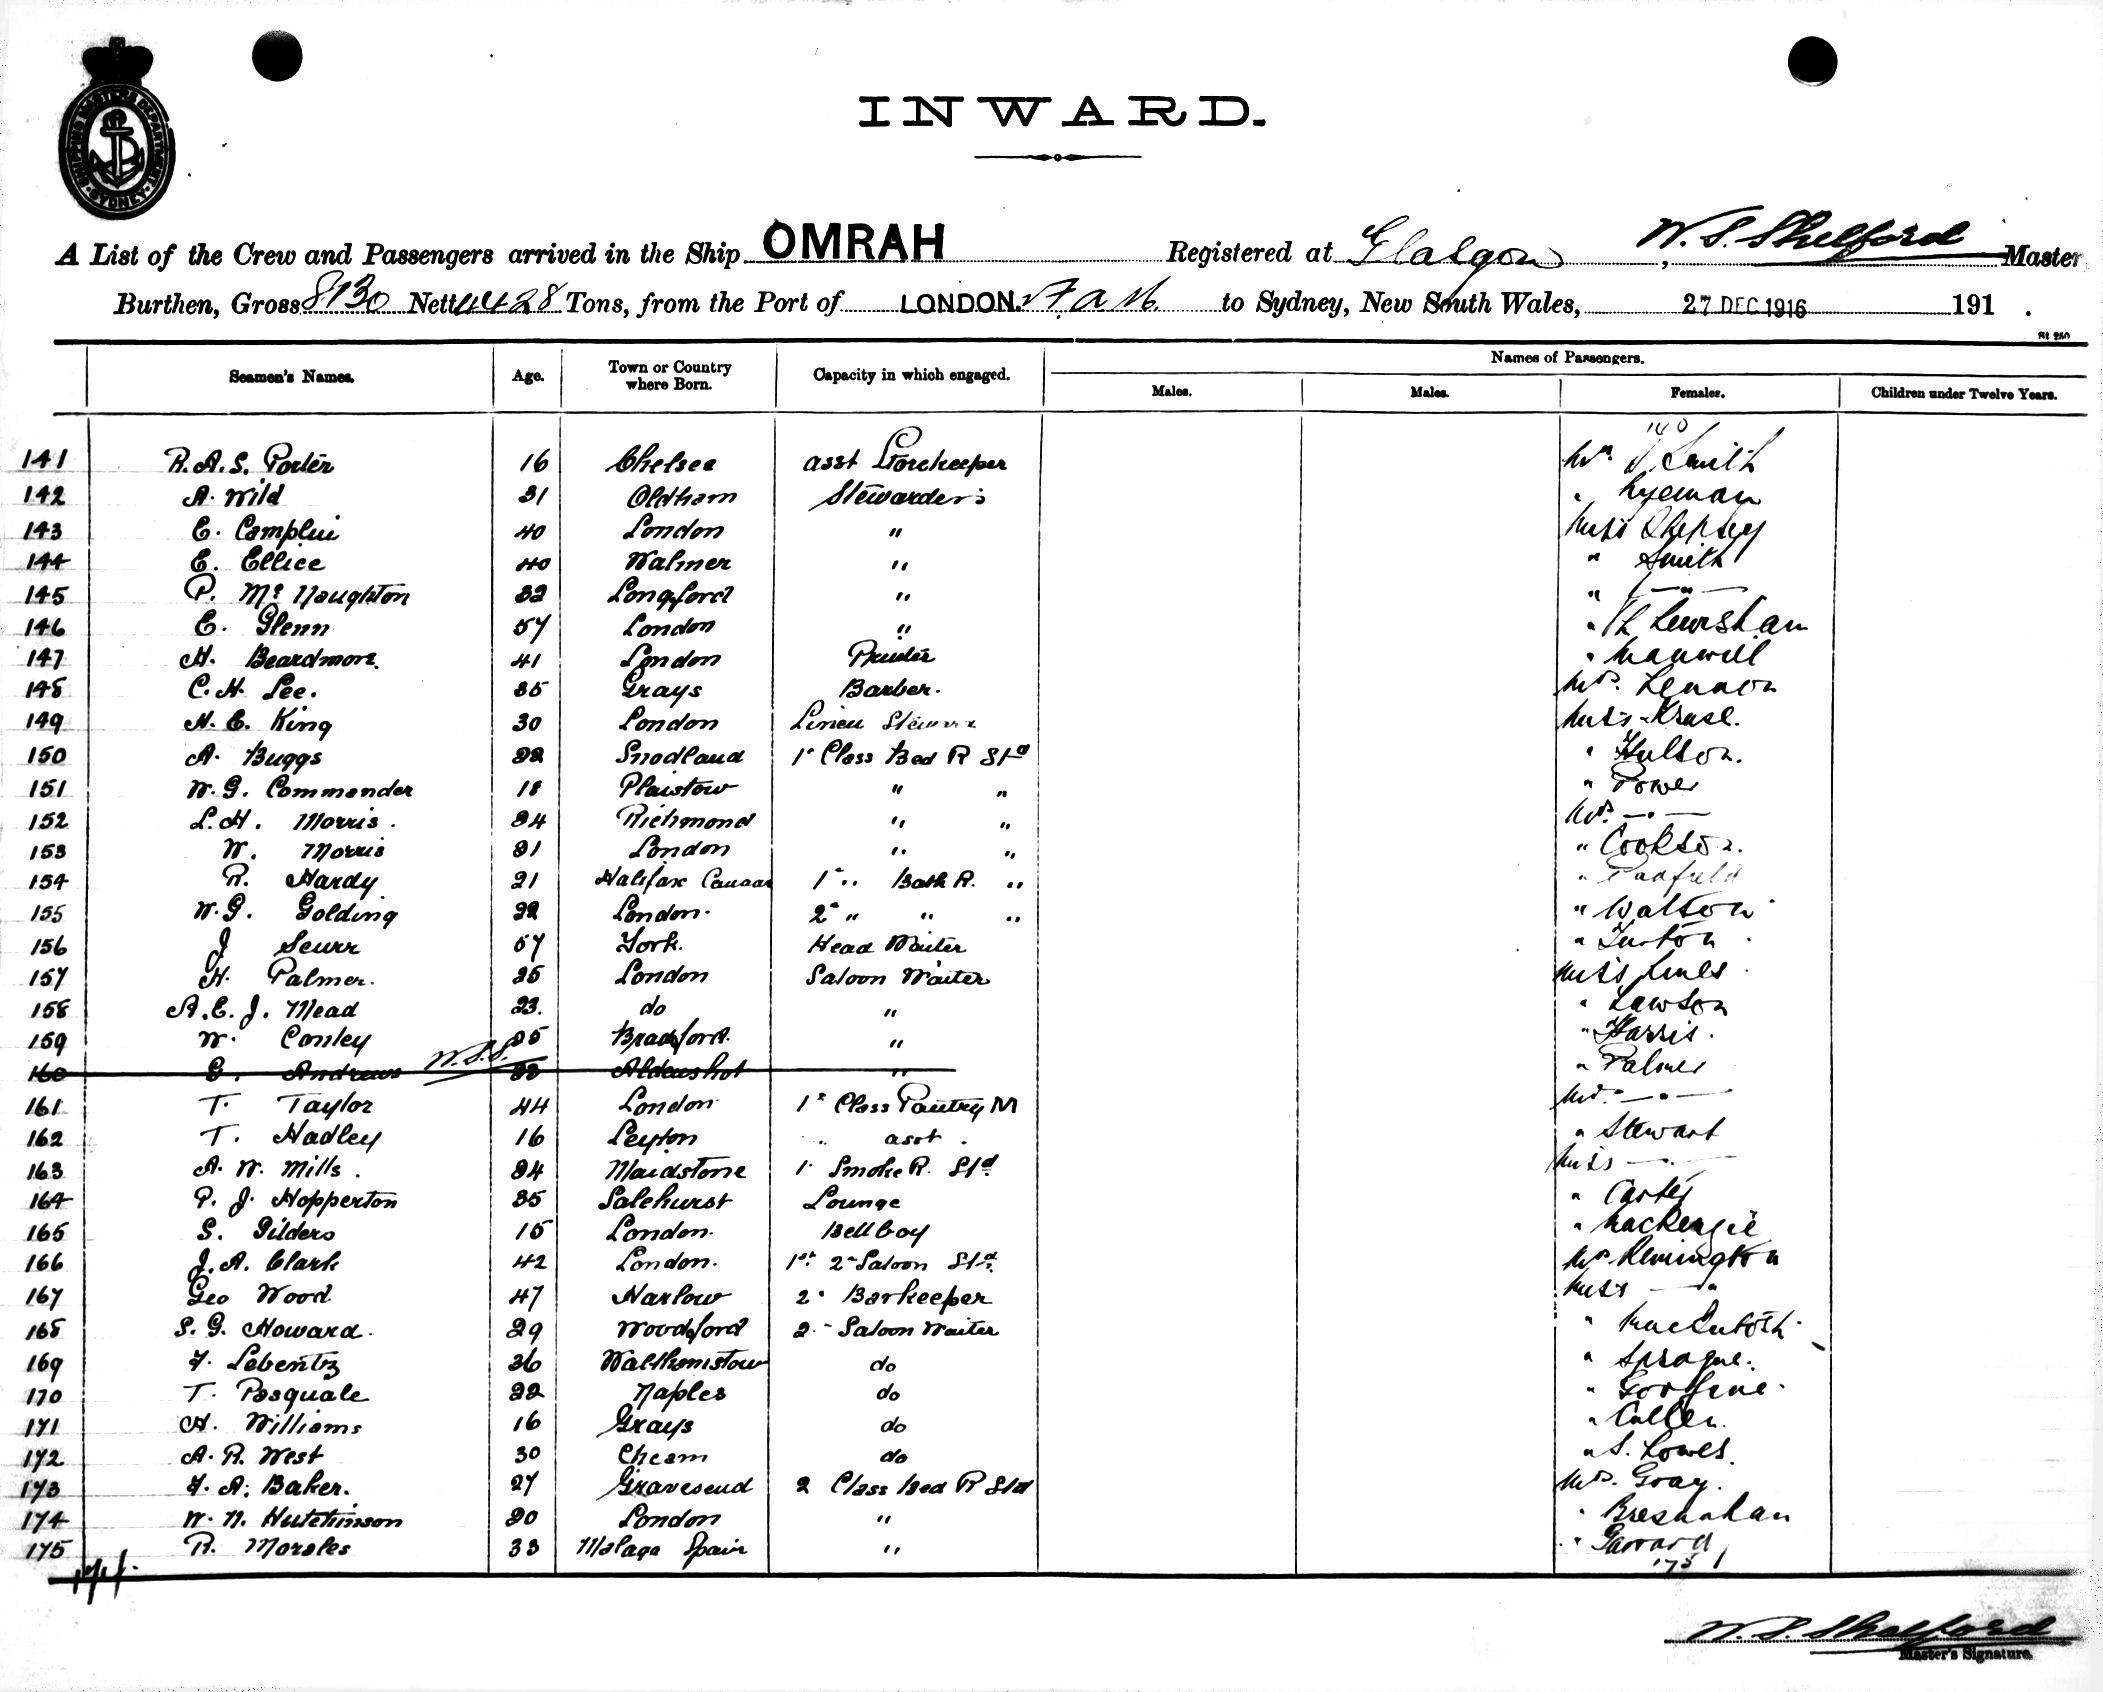 SHIPPING MASTERS DEPARTMENT SYDNEY
INWARD.
A List of the Crew and Passengers arrived in the Ship OMRAH Registered at Glasgow, W. S. Shelford Master
Burthen, Gross 8130 Nett 4428 Tons, from the Port of LONDON. to Sydney, New South Wales, 27 DEC 1916 191 .
St 250
Seamen's Names. Age. Town or Country where Born. Capacity in which engaged. Names of Passengers.
Males. Males. Females. Children under Twelve Years.
140
141 R. A. S. Porter 16 Chelsea asst Storekeeper Mrs Smith
142 A. Wild 31 Oldham Stewardess " Lyeman
143 E. Camplin 40 London " Miss Shepsey
144 E. Ellice 40 Walmer " " Smith
145 P. Mc Naughton 32 Longford " " — " —
146 E. Glenn 57 London " " Lewisham
147 H. Beardmore. 41 London Printer " Maxwell
148 C. H. Lee. 35 Grays Barber. Mrs. Lennon
149 H. E. King 30 London Linen Steward Miss Kruse.
150 A. Buggs 22 Snodland 1st Class Bed R Std " Hulson.
151 W. G. Commander 18 Plaistow " " " Power
152 L. H. Morris. 24 Richmond " " Mrs. — " —
153 W. Morris 21 London " " " Cookson.
154 R. Hardy 21 Halifax Canada 1st " Bath R. " " Padfield
155 W. G. Golding 22 London. 2nd " " " " Watson
156 J Scurr 57 York. Head Waiter " Turton
157 H. Palmer. 25 London Saloon Waiter Miss Lines
158 A. E. J. Mead 23. do " " Lawson
159 W. Conley 25 Bradford. " " Harris.
160 E. Andrews W.S.S. Aldershot " " Palmer
161 T. Taylor 44 London 1st Class Pantry M Mrs. — " —
162 T. Hadley 16 Leyton " asst. " Stewart
163 A. W. Mills. 24 Maidstone 1st Smoke R. Std Miss — " —
164 P. J. Hopperton 35 Salehurst Lounge " Carter
165 S. Gilders 15 London. Bellboy " MacKenzie
166 J. A. Clark 42 London. 1st 2nd Saloon Std. Mrs Remington
167 Geo Wood 47 Harlow 2nd Barkeeper Miss — "
168 S. G. Howard. 29 Woodford 2nd Saloon Waiter " MacIntosh
169 F. Lebentz 36 Walthamstow do " Sprague.
170 T. Pasquale 22 Naples do "
171 H. Williams 16 Grays do " Cullen.
172 A. R. West 30 Cheam do " S. Lowes.
173 F. A. Baker. 27 Gravesend 2 Class Bed R Std Mrs. Gray.
174 W. N. Hutchinson 20 London " " Bresnahan
175 R. Morales 33 Malaga Spain " " Garrard
175
W. S. Shelford
Master's Signature.